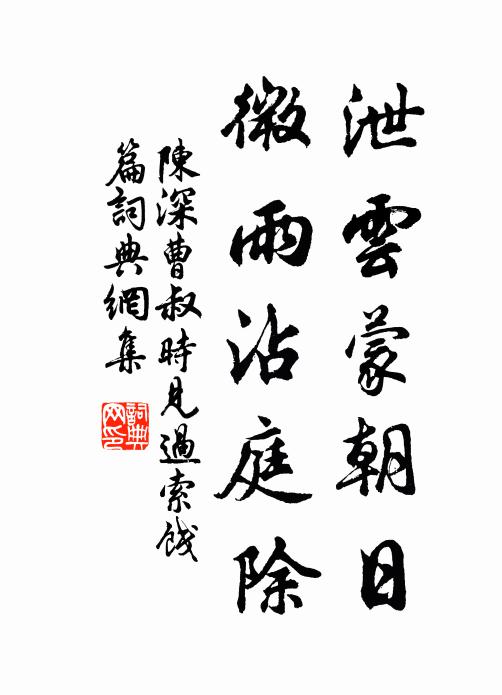 泄雲蒙朝日
微雨沾庭除
陳深曹叔時見過索餞
篇詞典網集
詞典网印